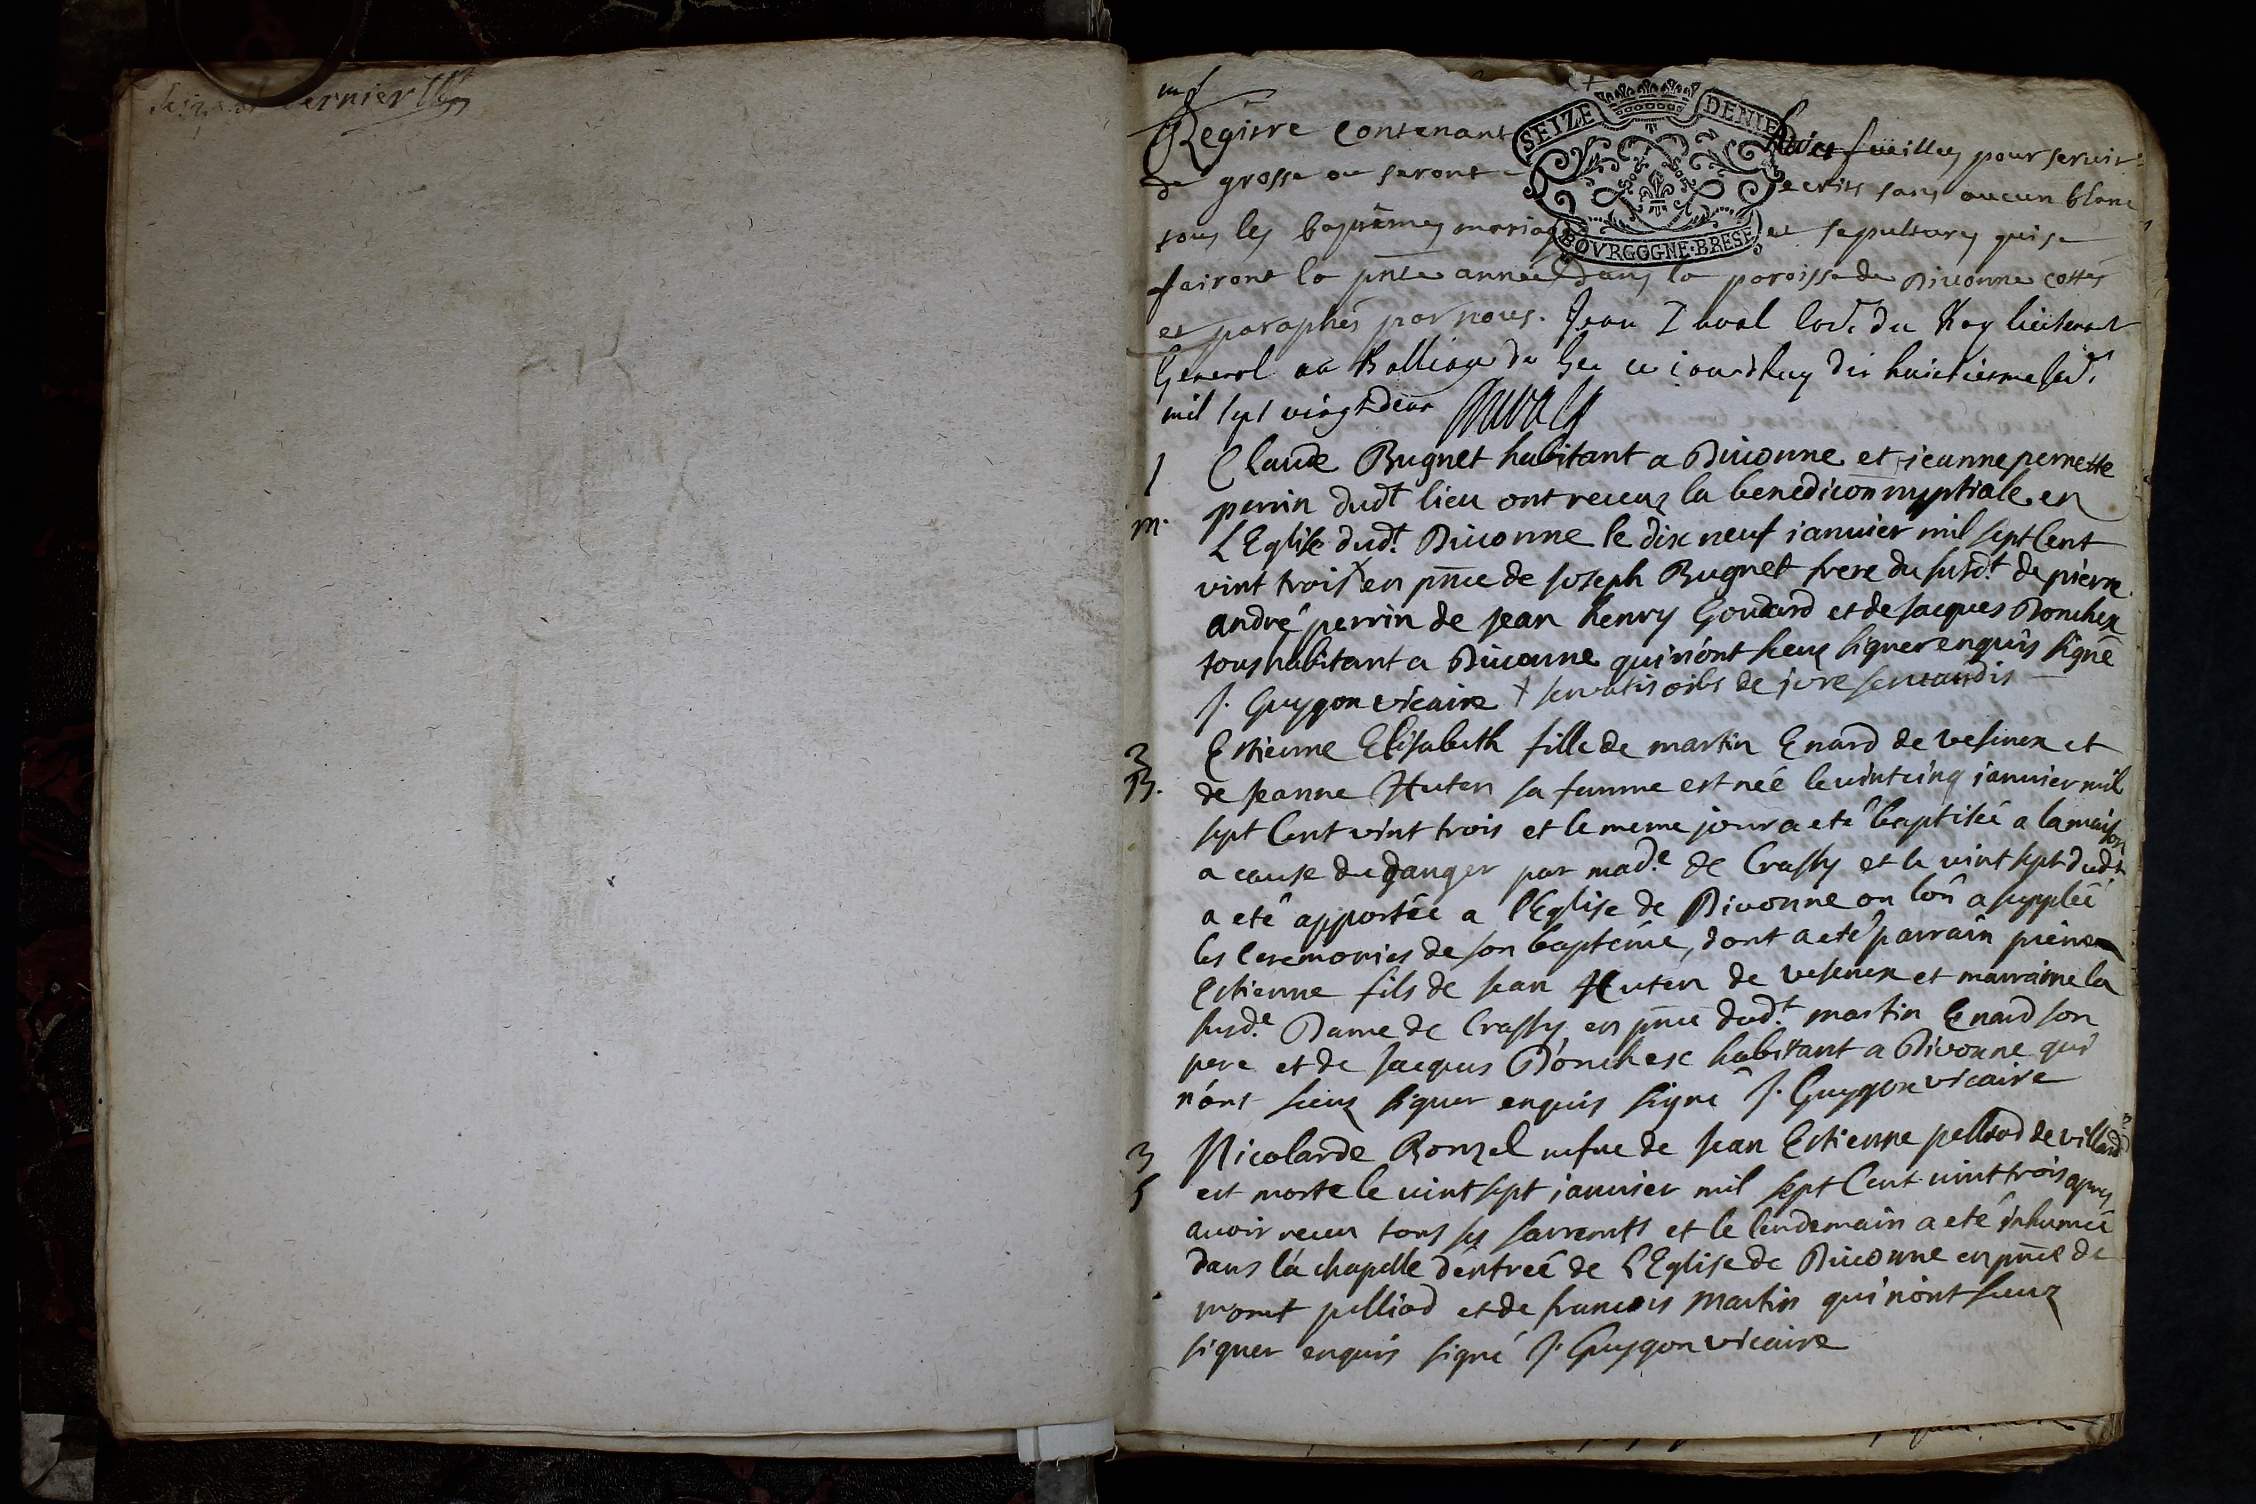 dernier
Registre contenant huict fueilles pour servir
SEIZE DENIE
de grosse ou seront ecrits sans aucun blanc
tous les baptêmes mariages et sepultures qui se
BOVRGOGNE·BRESE
fairont la pnte année dans la paroisse de Divonne cottés
et paraphés par nous. Jean Duval du Roy lieutenant
General au Balliage de Gex ce jourdhuy dix huictiesme
mil sept vingt deux Duval
1 Claude Bugnet habitant a Divonne et jeanne pernette
m. perrin dudt lieu ont receus la benediction nuptiale en
L'Eglise dudt. Divonne le dix neuf janvier mil sept Cent
vint trois + en pnce de joseph Bugnet frere du susdt. de pierre
andré perrin de jean henry Goudard et de jacques Donchex
tous habitant a Divonne qui n'ont sceus signer enquis signé
J. Guygon vicaire + servatis oibs de jure servandis
2 Estienne Elisabeth fille de martin Enard de vesenex et
B. de jeanne Huten sa femme est née le vint cinq janvier mil
sept Cent vint trois et le meme jour a eté baptisée a la maison
a cause du danger par made. de Crassy et le vint sept dudt
a eté apportée a l'Eglise de Divonne ou lon a supplée
les Ceremonies de son baptême, dont a eté parrain pierre
Estienne fils de jean Huten de vesenex et marraine la
susde. Dame de Crassy en pnce dudt. martin Enard son
pere et de jacques Donchex habitant a Divonne qui
n'ont sceus signer enquis signé J. Guygon vicaire
3 Nicolarde Ronzel vefue de jean Estienne pelliod de villard
S est morte le vint sept janvier mil sept Cent vint trois apres
avoir receu tous ses sacremts et le lendemain a eté inhumée
dans la chapelle d'entreé de L'Eglise de Divonne en pnce de
pelliod et de francois martin qui n'ont sceus
signer enquis signé J. Guygon vicaire